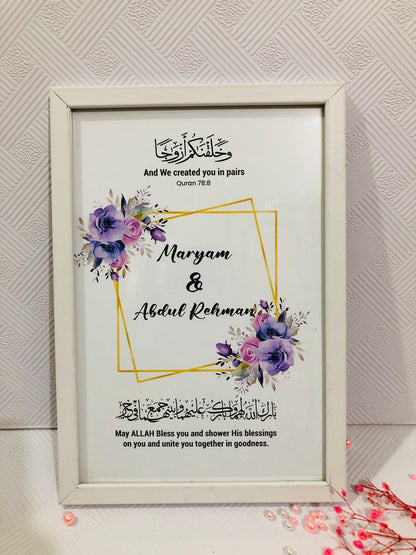 وَخَلَقْنَكُمْ أَزْوَٰجًا
And We created you in pairs
Quran 78:8
Maryam
&
Abdul Rehman
بارك الله لهما وبارك عليهما وجمع بينهما في خير
May ALLAH Bless you and shower His blessings
on you and unite you together in goodness.